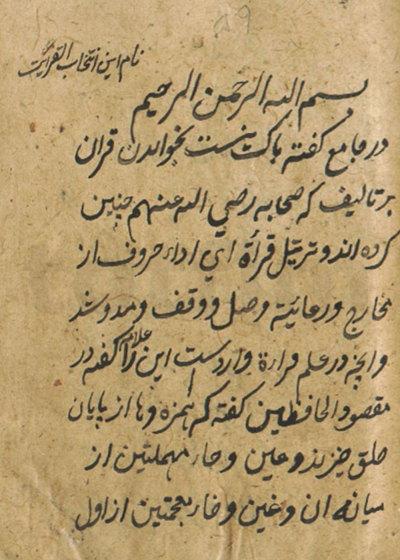 نام این انتخاب القرایت
بسم الله الرحمن الرحیم
در جامع گفته باک نیست بخواندن قران
بر تالیف که صحابه رضی الله عنهم چنین
کرده اند و ترتیل قرأة ای اداء حروف از
مخارج و رعایة وصل و وقف و مد و شد
وانچه در علم قراءة وارد ست این را گفته در
مقصود الحافظین گفته که همزه و ها از پایان
حلق خیزند و عین و حاء مهملتین از
میانه ان و غین و خاء معجمتین از اول